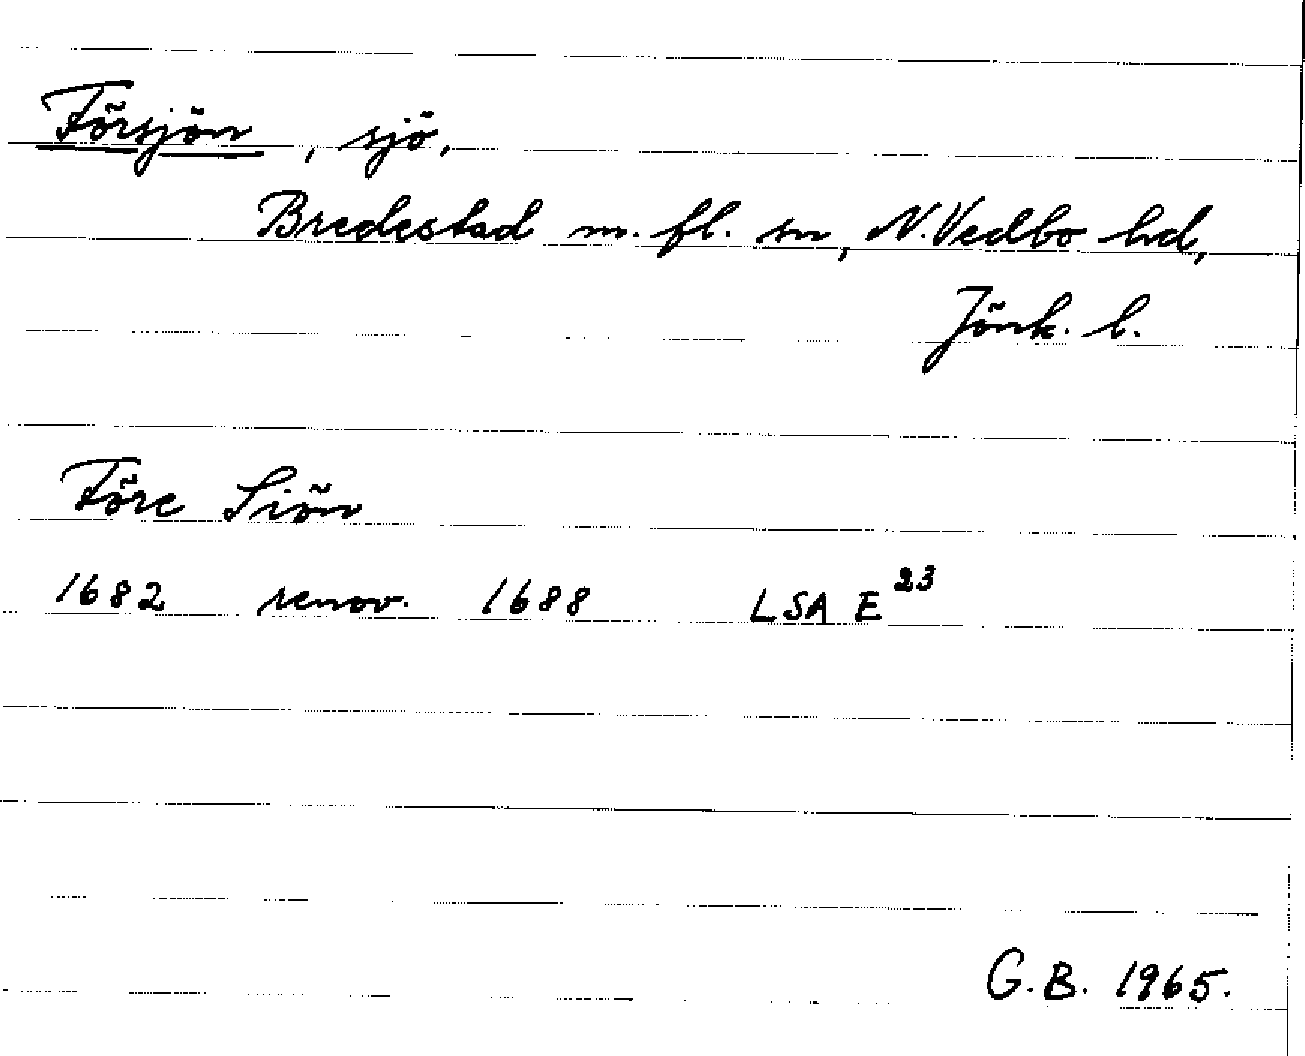 Försjön, sjö,
Bredestad m. fl. sn, N. Vedbo hd,
Jönk. l.
Före Siön
1682 renov. 1688 LSA E²³
G.B. 1965.